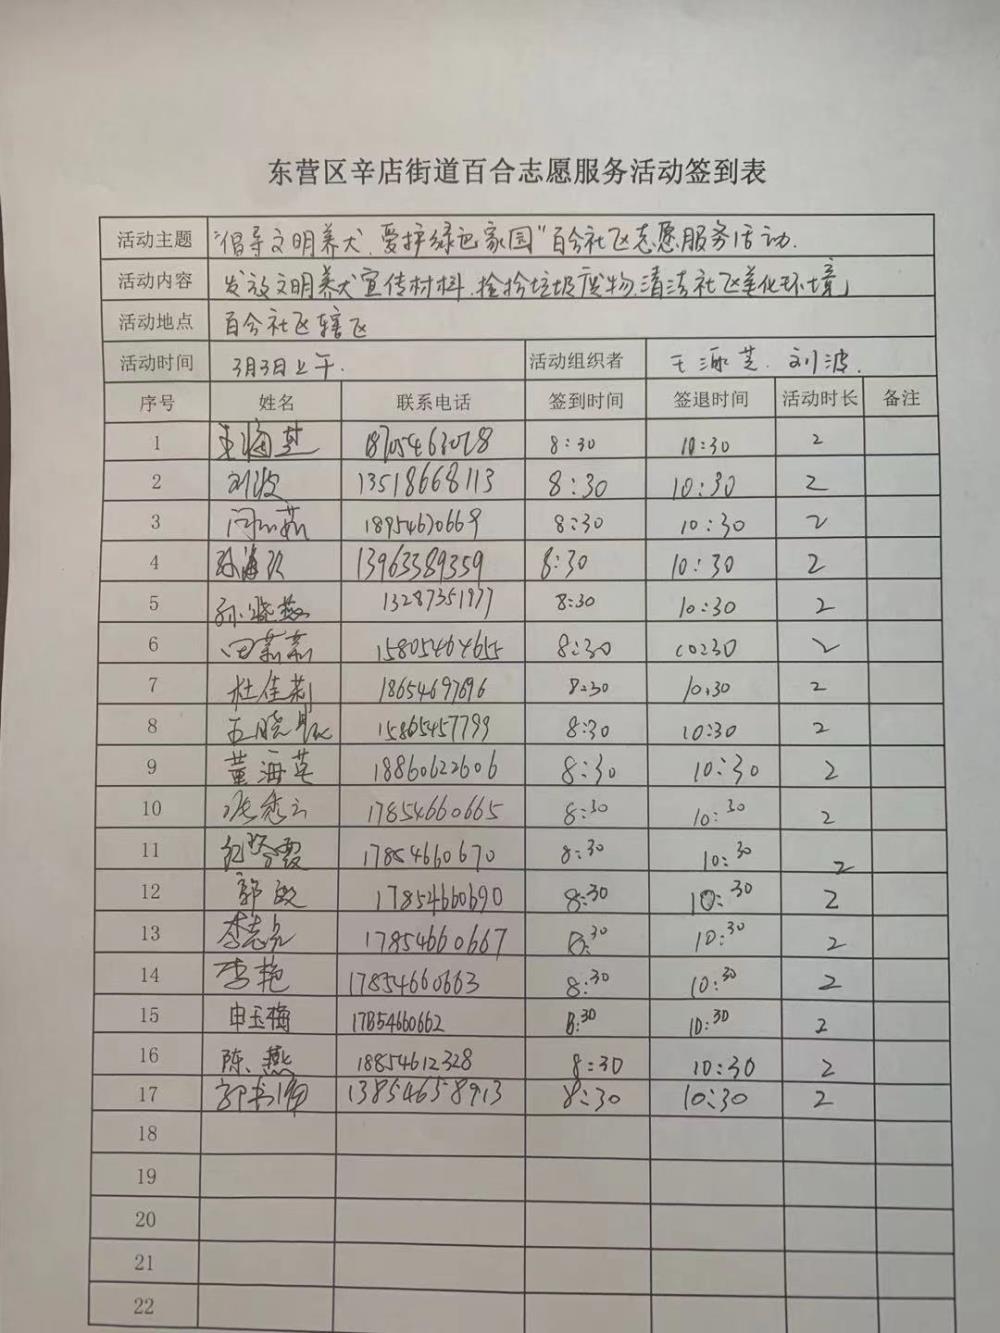 东营区辛店街道百合志愿服务活动签到表
活动主题 "倡导文明养犬、爱护绿色家园"百合社区志愿服务活动.
活动内容 发放文明养犬宣传材料、捡拾垃圾废物,清洁社区美化环境
活动地点 百合社区辖区
活动时间 3月3日上午. 活动组织者 王 芝. 刘波.
序号 姓名 联系电话 签到时间 签退时间 活动时长 备注
1 8:30 10:30 2
2 刘波 13518668113 8:30 10:30 2
3 18954670669 8:30 10:30 2
4 13963389359 8:30 10:30 2
5 孙晓燕 13287351977 8:30 10:30 2
6 田莉莉 15805464655 8:30 10:30 2
7 杜佳莉 18654697696 8:30 10:30 2
8 15865457799 8:30 10:30 2
9 董海英 18860622606 8:30 10:30 2
10 张秀云 17854660665 8:30 10:30 2
11 17854660670 8:30 10:30 2
12 郭敏 17854660690 8:30 10:30 2
13 李志亮 17854660667 8:30 10:30 2
14 李艳 17854660663 8:30 10:30 2
15 申玉梅 17854660662 8:30 10:30 2
16 陈燕 18854612328 8:30 10:30 2
17 13854658913 8:30 10:30 2
18
19
20
21
22